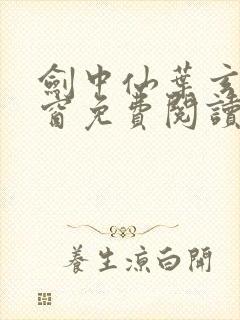 劍中仙葉玄
窗免費閱讀
養生涼白開